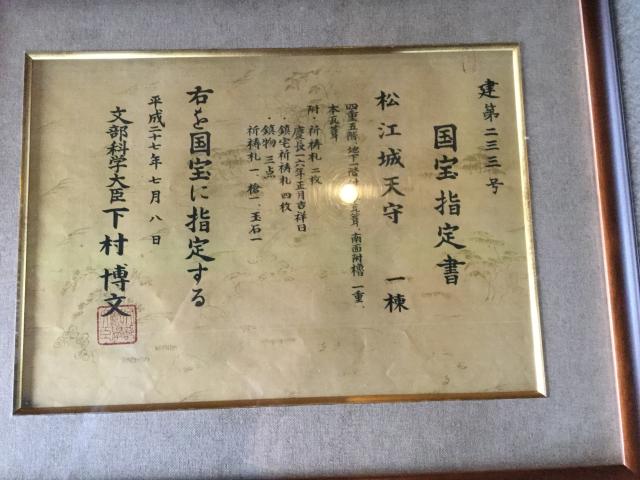 建第二三三号
国宝指定書
松江城天守 一棟
四重五階地下一階付、本瓦葺、南面附櫓 一重、
本瓦葺
附・祈祷札 二枚
慶長一六年正月吉祥日
・鎮宅祈祷札 四枚
・鎮物 三点
祈祷札一、槍一、玉石一
右を国宝に指定する
平成二十七年七月八日
文部科学大臣 下村博文